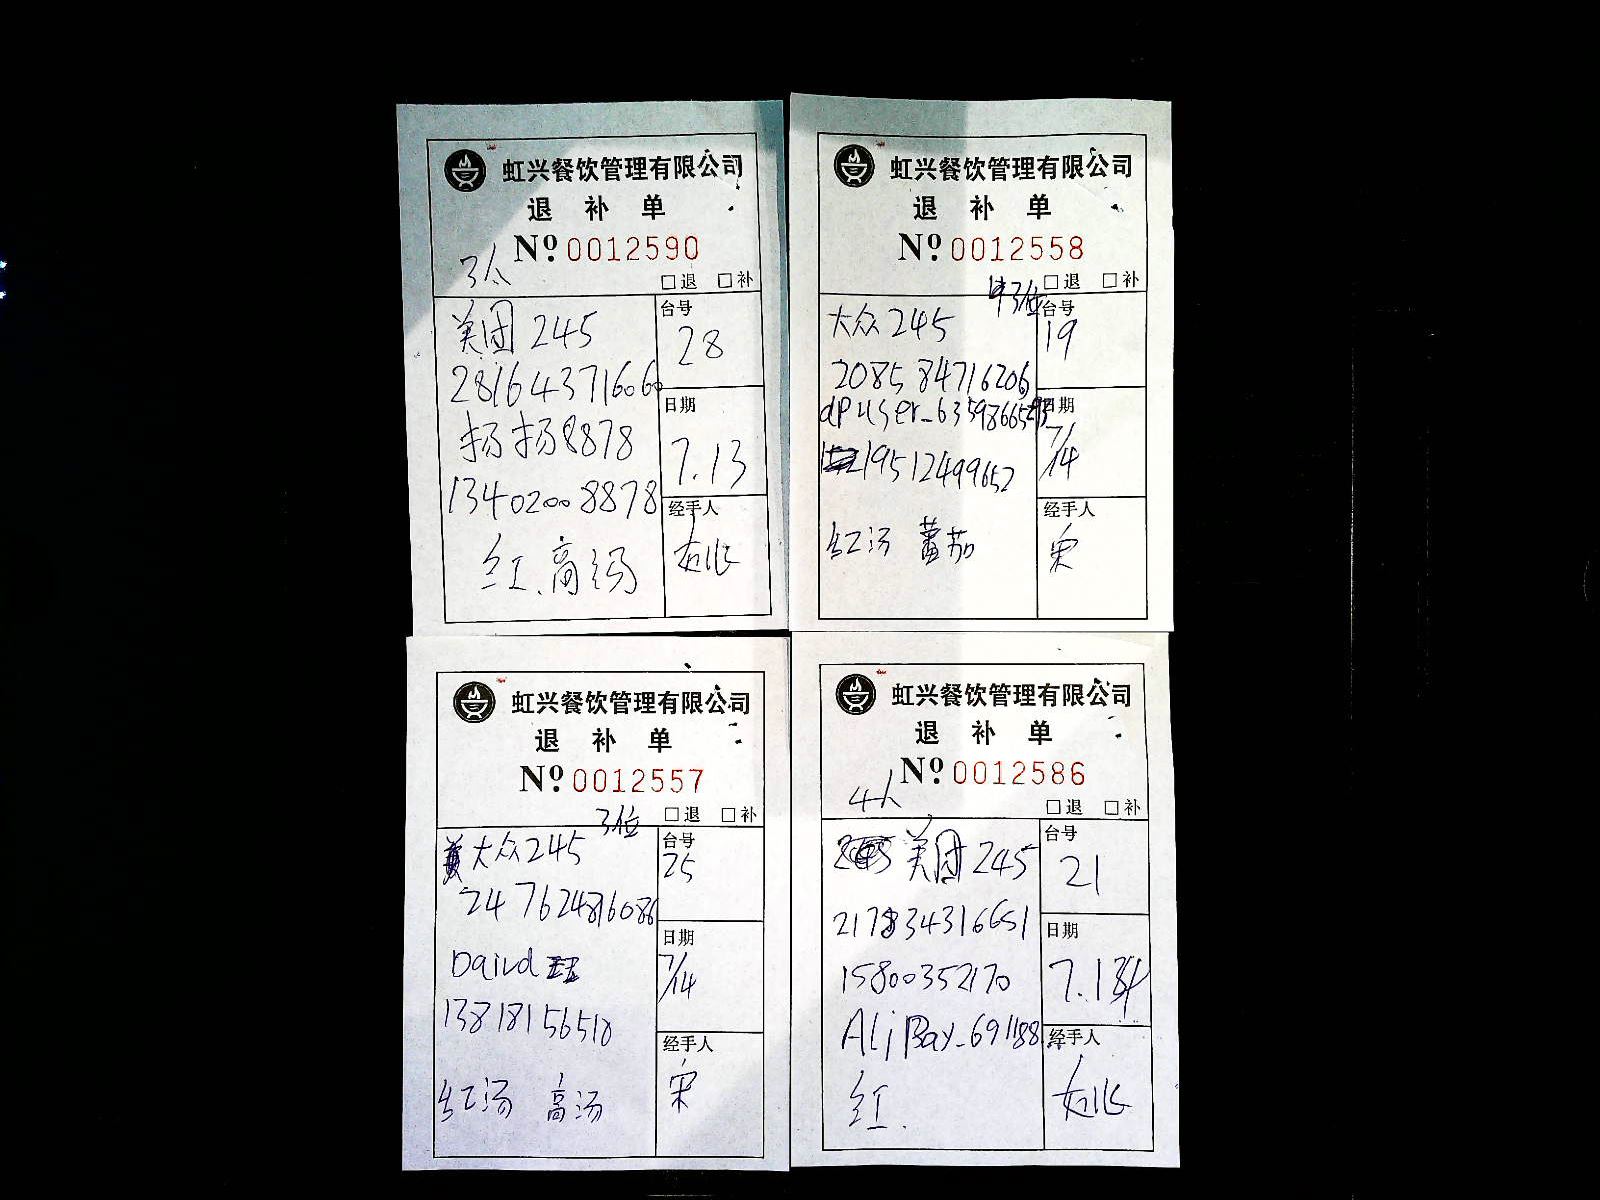 虹兴餐饮管理有限公司
退 补 单
Nº 0012590
3人
□退 □补
美团 245
28164371606
扬扬8878
13402008878
红.高汤
台号
28
日期
7.13
经手人
虹兴餐饮管理有限公司
退 补 单
Nº 0012558
□退 □补
3位
大众 245
2085 84716206
dpuser_63598665293
19512499652
红汤 蕃茄
台号
19
日期
7/14
经手人
宋
虹兴餐饮管理有限公司
退 补 单
Nº 0012557
3位
□退 □补
大众245
24 7624816086
David
13818156518
红汤 高汤
台号
25
日期
7/14
经手人
宋
虹兴餐饮管理有限公司
退 补 单
Nº 0012586
4人
□退 □补
美团 245
217834316651
15800352170
AliBay_691188
红.
台号
21
日期
7.14
经手人